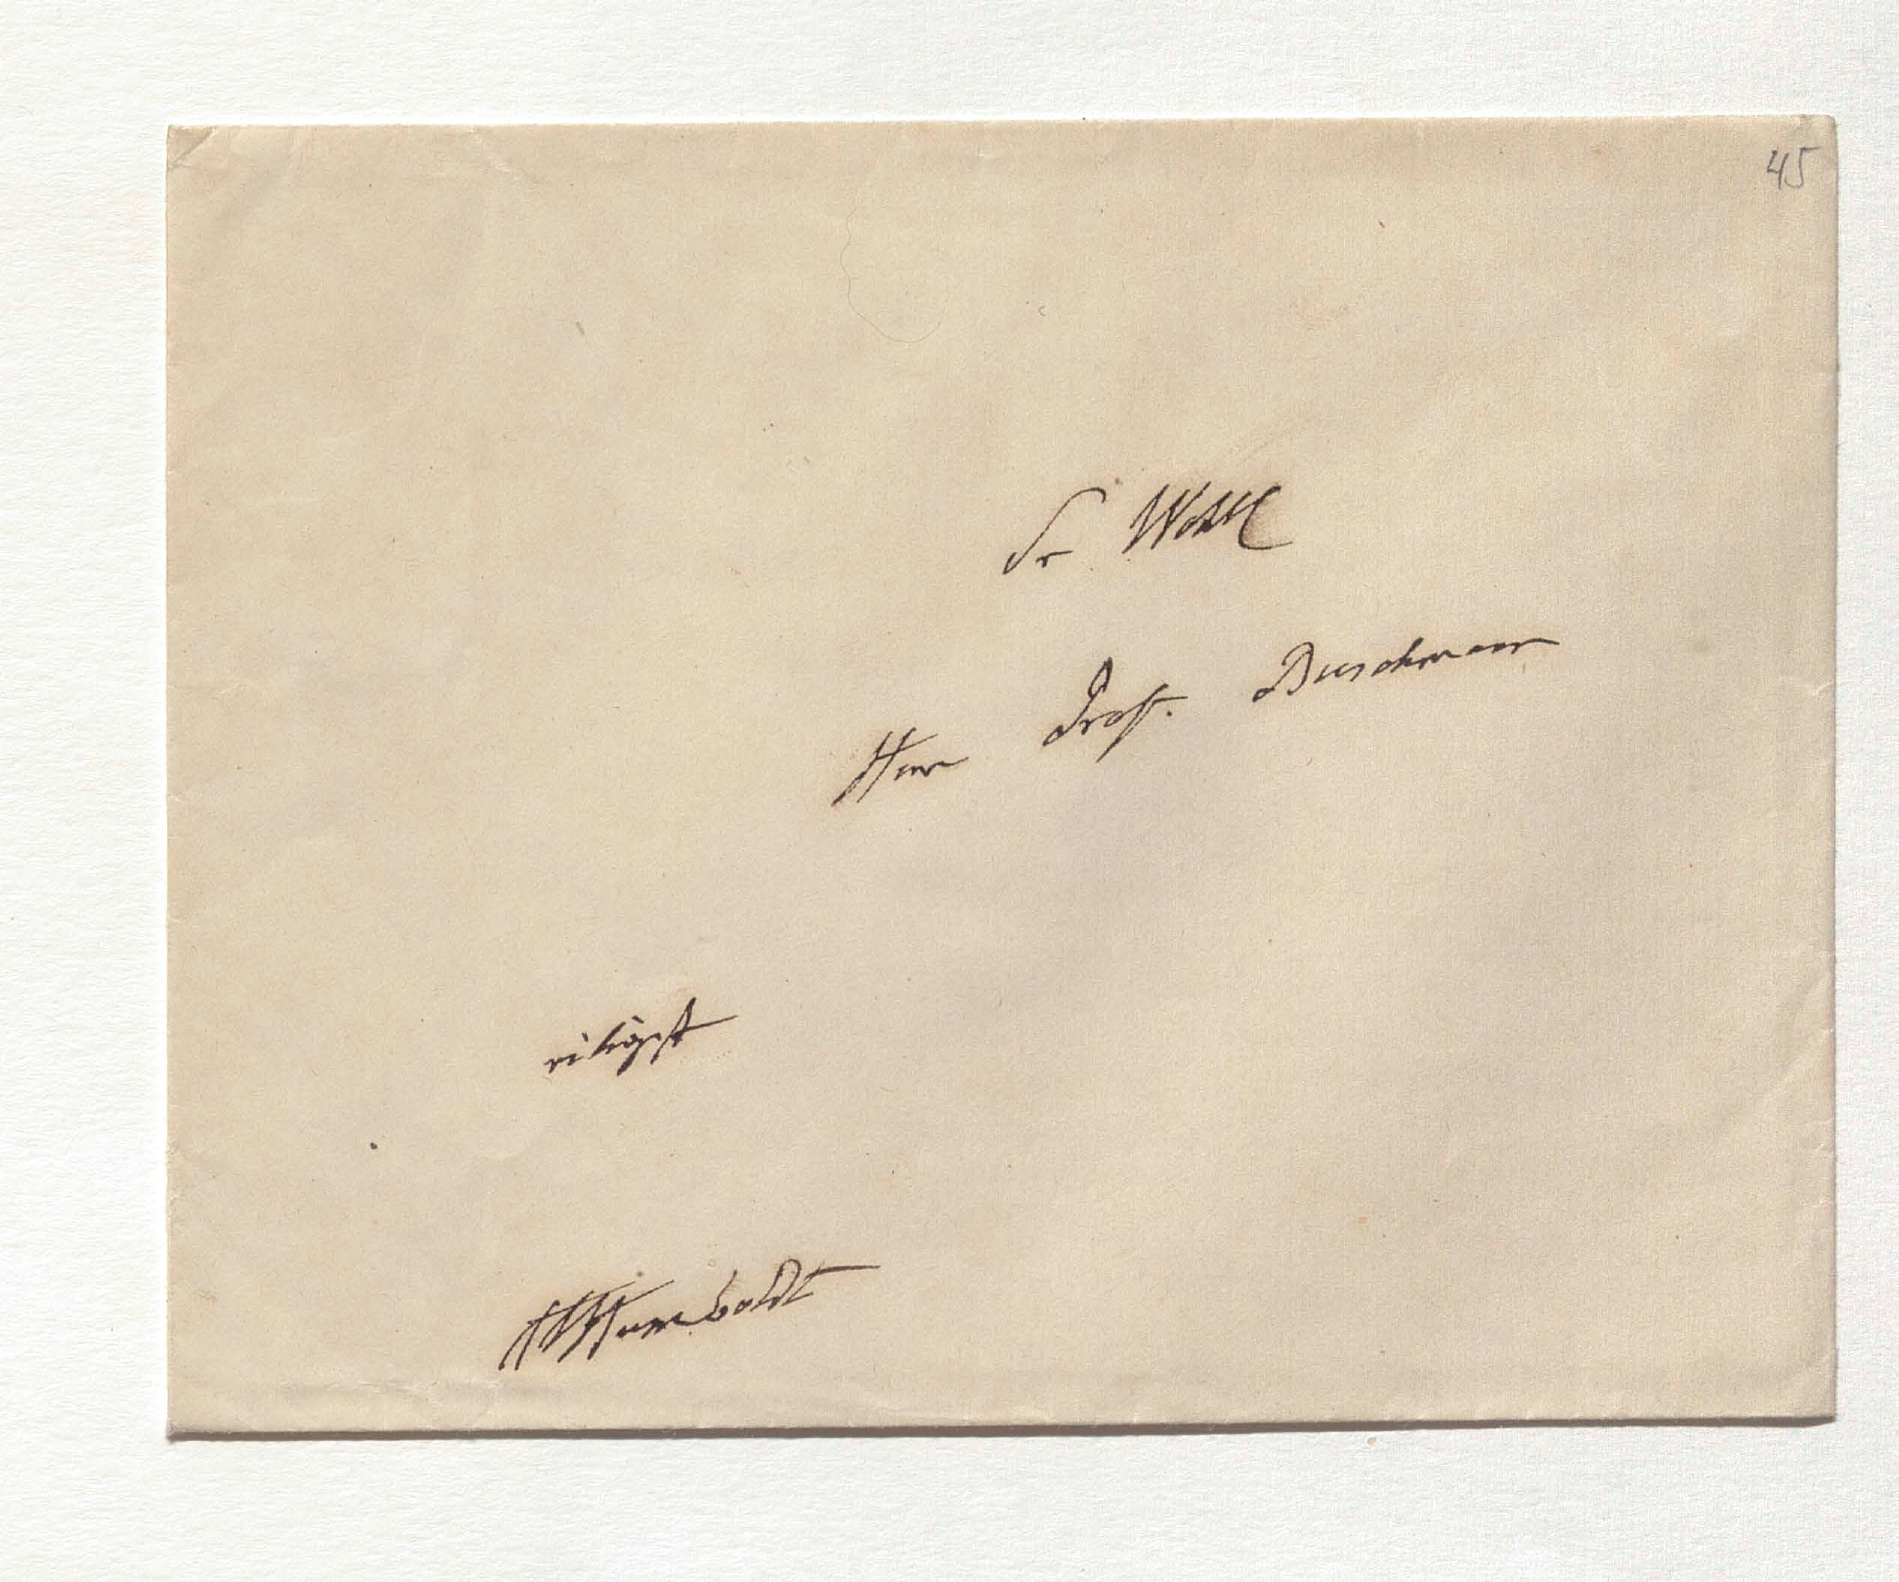 45
Sr Wohl
Herrn Prof. Buschmann
eiligst
AvHumboldt